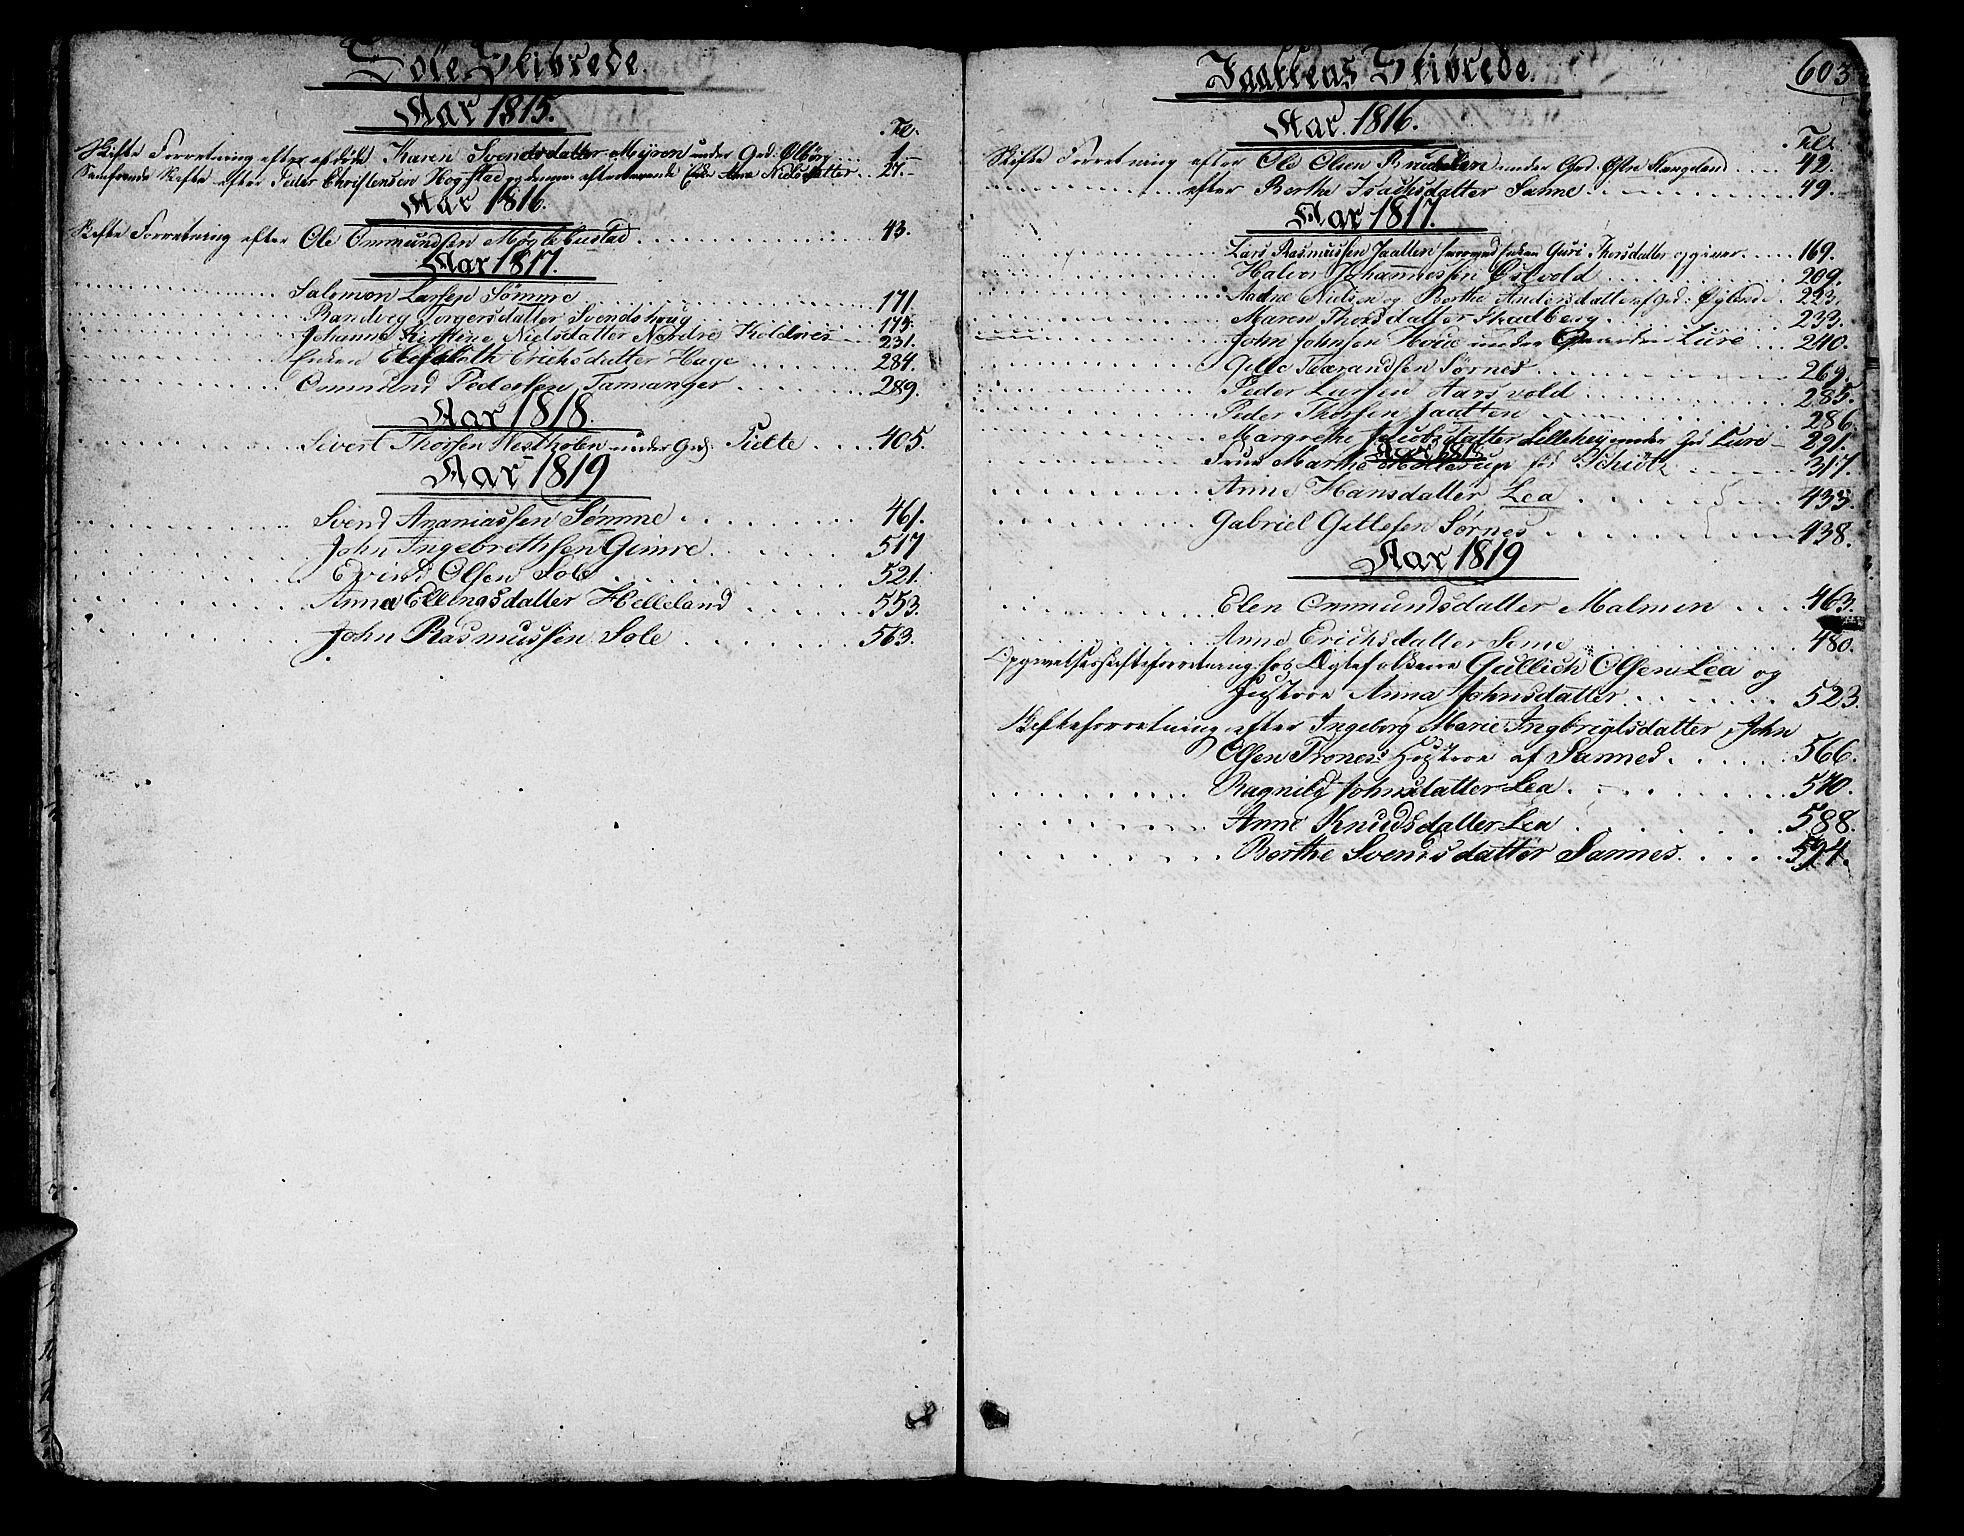 Sole Skibrede.
Aar 1815.
Fol.
Skifte Forretning efter afdøde Karen Svendsdatter Myren under Grd: Ølbør . . . 1.
Samfrænde Skifte efter Peder Christensen Hogstad og dennes efterlevende Enke Ane Nielsdatter . . 27.
Aar 1816.
Skifte Forretning efter Ole Ommundsen Møglebustad . . . 43.
Aar 1817.
Salomon Larsen Sømme . . . 171.
Randveg Torgersdatter Svendskrug . . . 175.
Johanne Kirstine Nielsdatter Nordre Koldnes . . . 231.
Enken Elisabeth Erichsdatter Hage . . . 284.
Ommund Pedersen Tananger . . . 289.
Aar 1818.
Sivert Thorsen Westholen under Grd: Tielte . . . 405.
Aar 1819
Svend Ananiassen Sømme . . . 461.
John Ingebrethsen Gimre . . . 517
Evind Olsen Sole . . . 521.
Anna Ellingsdatter Helleland . . . 553.
John Rasmussen Sole . . . 563.
Jaattens Skibrede. 603
Aar 1816.
Fol:
Skifte Forretning efter Ole Olsen under Grd: Østre Stangeland . . . 42.
efter Berthe Isachsdatter Sahne . . . 49.
Aar 1817.
Lars Rasmussen Jaatten Guri Thorsdatter opgiver . . . 169.
Halvor Johannessen Østvold . . . 209.
Aadne Nielsen og Berthe Andersdatter af Grd: Øylund . . 223.
Maren Thorsdatter Skadberg . . . 233.
John Johnsen Houe under Gaarden Lure . . . 240.
Gitle Tværandsen Sørnes . . . 269.
Peder Larsen Aarsvold . . . 285.
Peder Thorsen Jaatten . . . 286.
Margrethe Jacobsdatter Lillehey under Grd Lure — 291.
Aar 1818
Frue Marthe fød Schiøtz . . . 317.
Anne Hansdatter Lea . . . 433.
Gabriel Gitlesen Sørnes . . . 438.
Aar 1819
Elen Ommundsdatter Malmin . . . 463.
Anne Erichsdatter Some . . . 480.
Opgivelsesskifteforretning hos Egtefolkene Gullich Olsen Lea og
Hustroe Anna Johnsdatter . . . 523
Skifteforretning efter Ingeborg Marie Ingbrigtsdatter, John
Olsen Trones Hustroe af Sannes . . . 566.
Ragnild Johnsdatter Lea . . . 570.
Anne Knudsdatter Lea . . . 588.
Berthe Svendsdatter Sannes . . . 594.